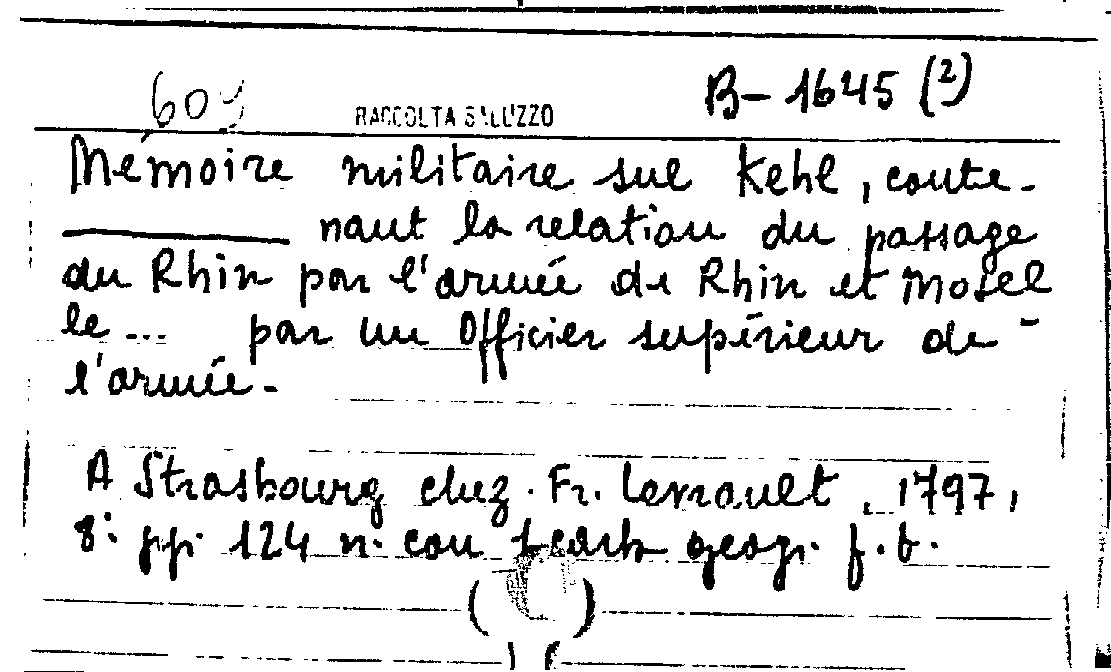 609 RACCOLTA SALUZZO B-1645 (2)
Mémoire militaire sul Kehl, conte-
nant la relation du passage
du Rhin par l'armée de Rhin et Mosel
le... par un Officier supérieur de
l'armée.
A Strasbourg chez Fr. Levrault, 1797,
8: pp. 124 n. con 1 carta geogr. f.t.